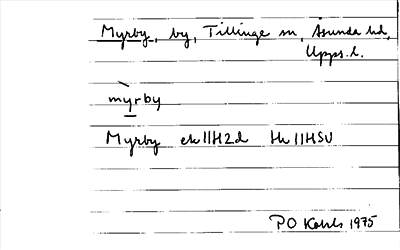 Myrby, by, Tillinge sn, Åsunda hd,
Upps. l.
mỳrby
Myrby ek 11H2d Hk 11HSV
PO Kohls 1975